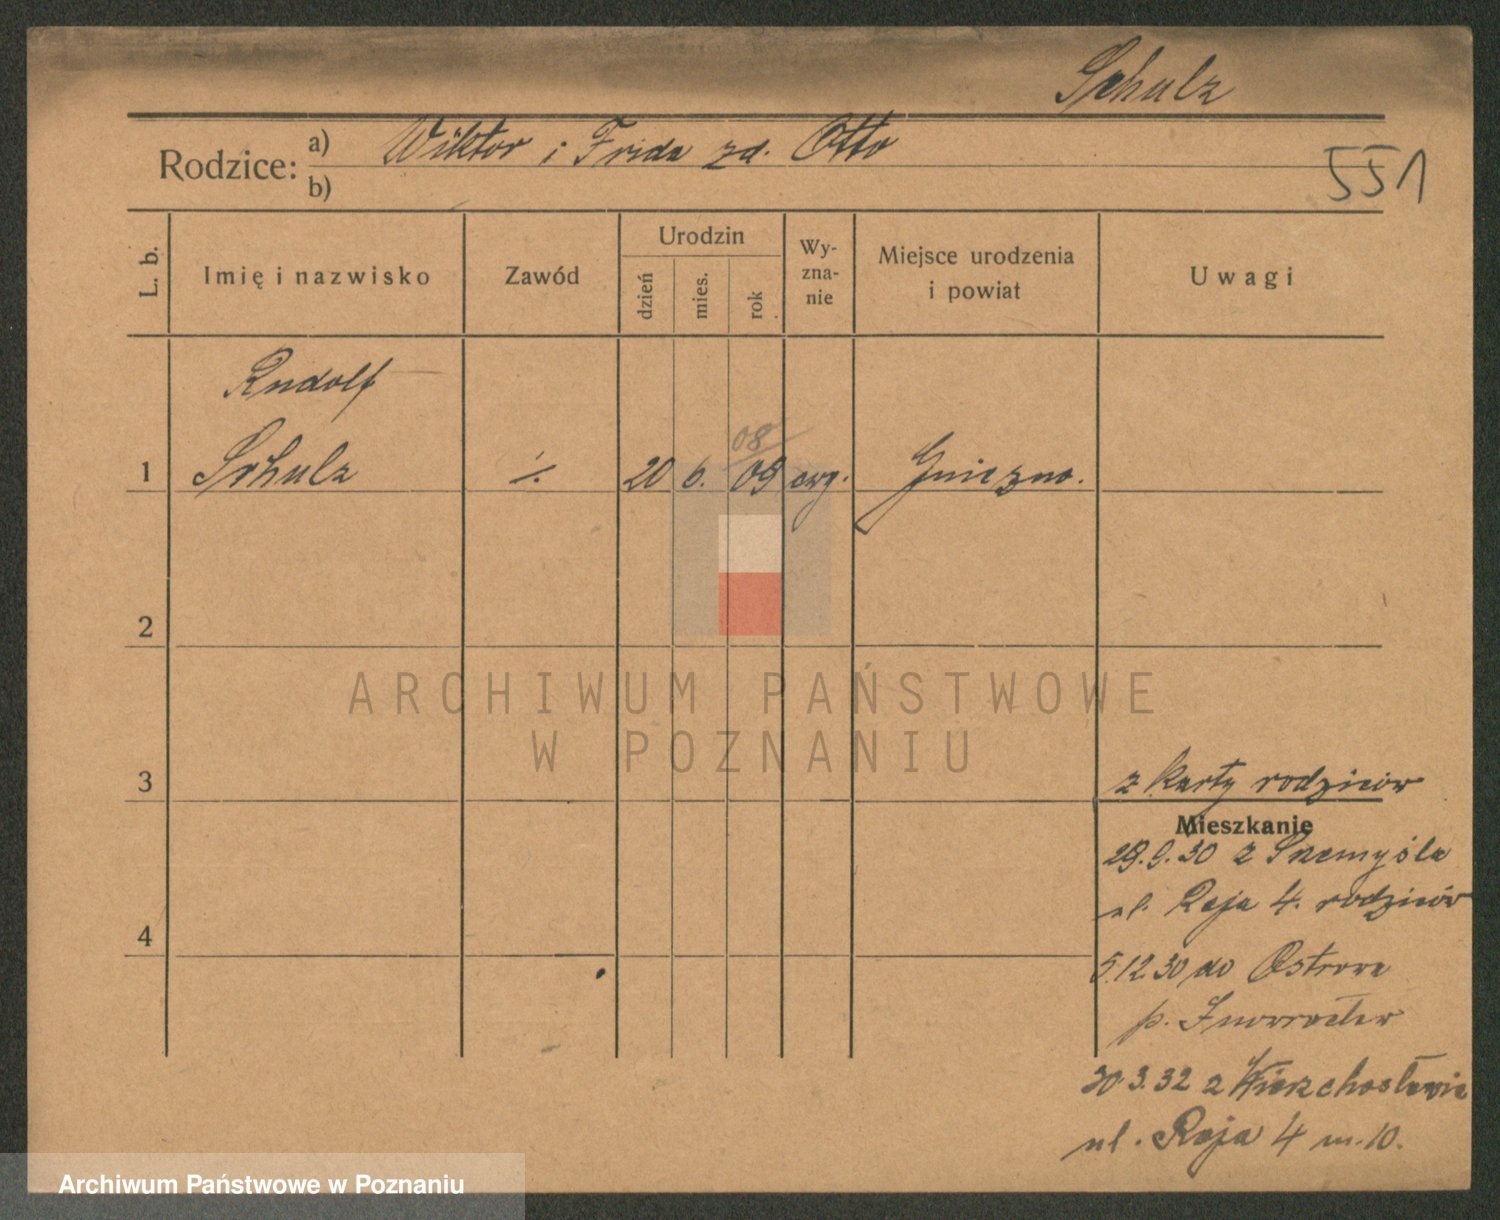 Schulz
Rodzice: a) Wiktor i Frida zd. Otto
b)
551
L. b.
Imię i nazwisko
Zawód
Urodzin
dzień
mies.
rok
Wy-
zna-
nie
Miejsce urodzenia
i powiat
Uwagi
Rudolf
08
1 Schulz ./. 20 6. 09 ewg. Gniezno.
2
ARCHIWUM PAŃSTWOWE
W POZNANIU
3
z karty rodziców
Mieszkanie
29.9.30 z Przemyśla
ul. Reja 4. rodziców
4
5.12.30 do Ostrowa
p. Inowrocław
30.3.32 z Wierzchosławic
ul. Reja 4 m. 10.
Archiwum Państwowe w Poznaniu